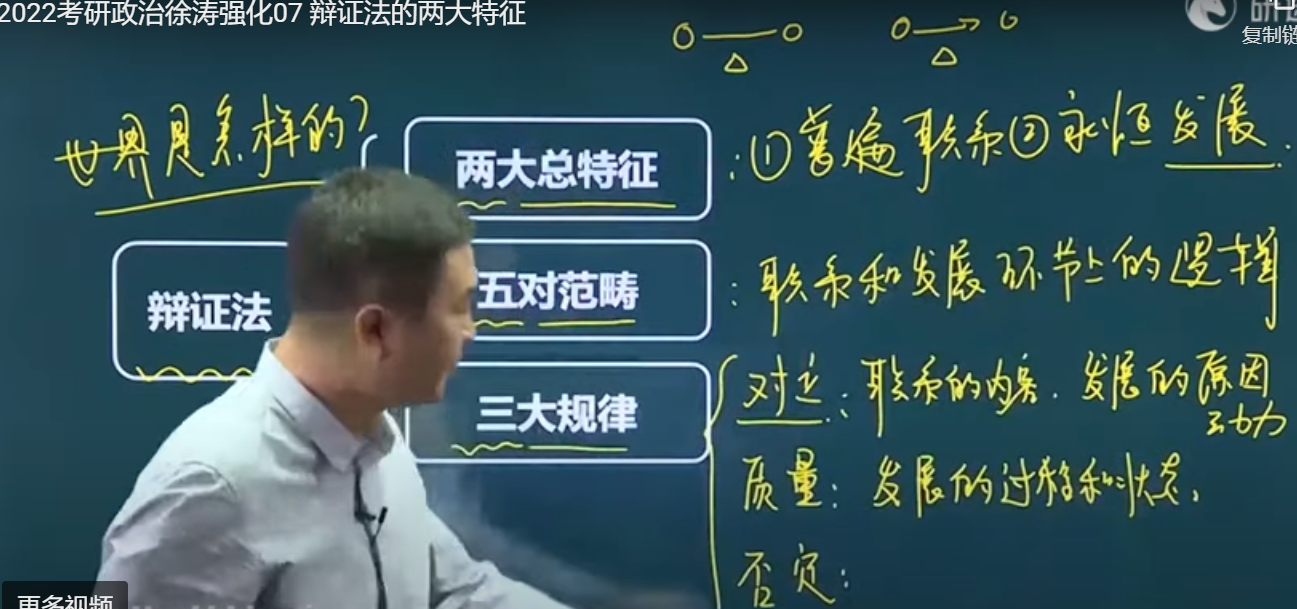 2022考研政治徐涛强化07 辩证法的两大特征
复制链
世界是怎样的?
两大总特征
:①普遍联系②永恒发展.
辩证法
五对范畴
:联系和发展环节上的逻辑
三大规律
对立:联系的内容.发展的原因
动力
质量:发展的过程和状态,
否定:
更多视频